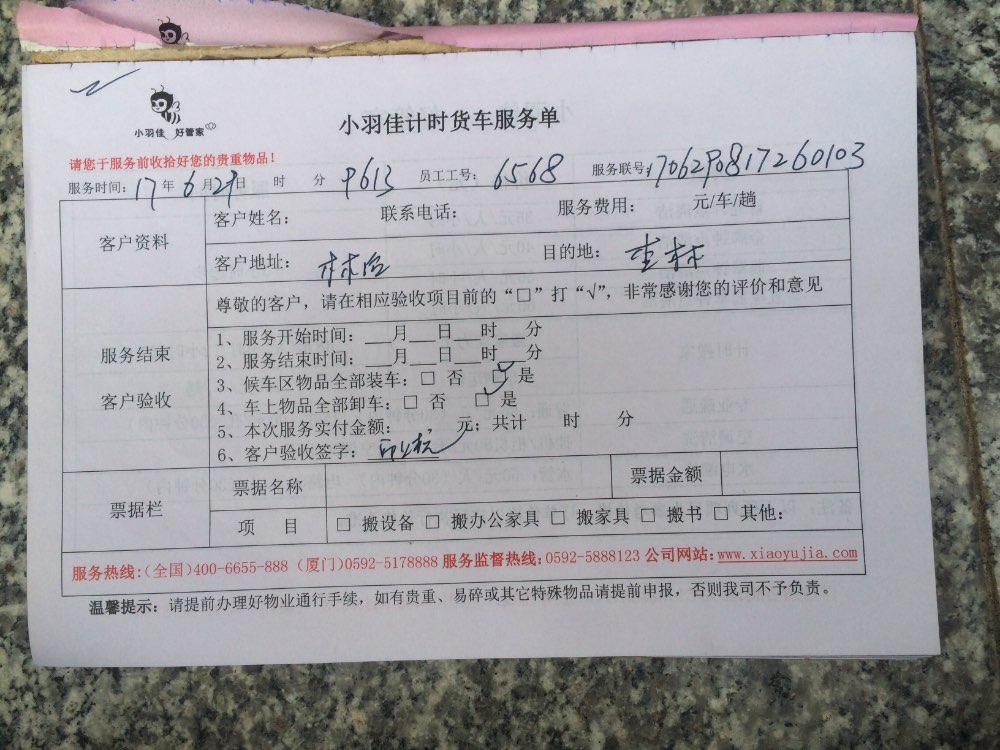 小羽佳 好管家
小羽佳计时货车服务单
请您于服务前收拾好您的贵重物品!
服务时间: 17年 6月29日 时 分 P613 员工工号: 6568 服务联号: 1706290817260103
客户资料
客户姓名: 联系电话: 服务费用: 元/车/趟
客户地址: 林后 目的地:
服务结束
客户验收
尊敬的客户，请在相应验收项目前的“□”打“√”，非常感谢您的评价和意见
1、服务开始时间: ___月___日___时___分
2、服务结束时间: ___月___日___时___分
3、候车区物品全部装车: □ 否 □ 是
4、车上物品全部卸车: □ 否 □ 是
5、本次服务实付金额: 元; 共计 时 分
6、客户验收签字:
票据栏
票据名称 票据金额
项 目 □ 搬设备 □ 搬办公家具 □ 搬家具 □ 搬书 □ 其他:
服务热线:(全国)400-6655-888 (厦门)0592-5178888 服务监督热线:0592-5888123 公司网站:www.xiaoyujia.com
温馨提示: 请提前办理好物业通行手续，如有贵重、易碎或其它特殊物品请提前申报，否则我司不予负责。